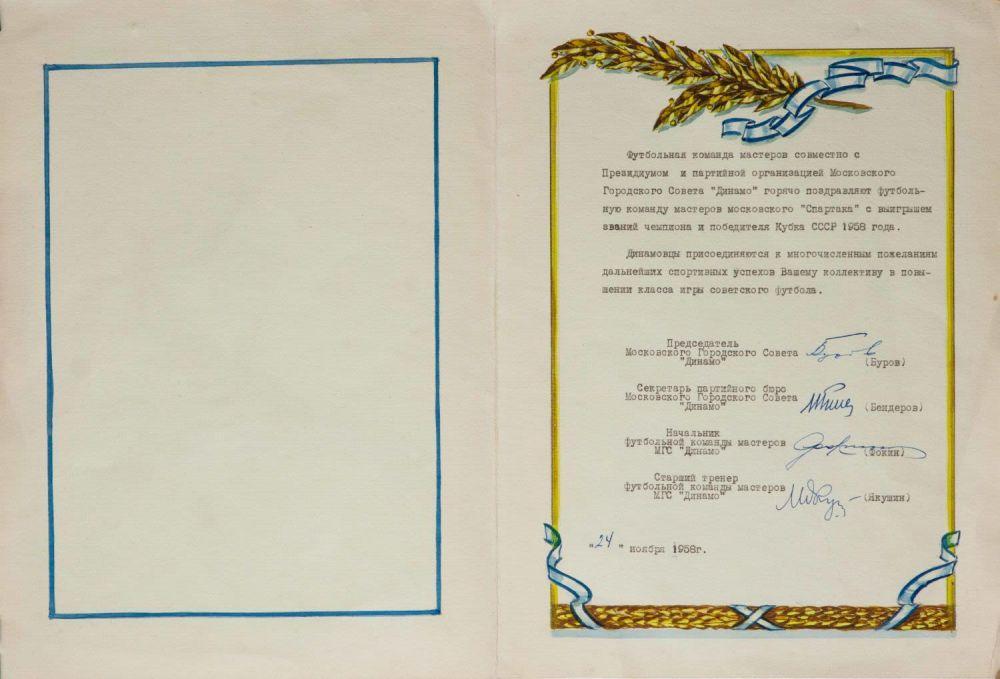 Футбольная команда мастеров совместно с
Президиумом и партийной организацией Московского
Городского Совета "Динамо" горячо поздравляют футболь-
ную команду мастеров московского "Спартака" с выигрышем
званий чемпиона и победителя Кубка СССР 1958 года.
Динамовцы присоединяются к многочисленным пожеланиям
дальнейших спортивных успехов Вашему коллективу в повы-
шении класса игры советского футбола.
Председатель
Московского Городского Совета
"Динамо" (Буров)
Секретарь партийного бюро
Московского Городского Совета
"Динамо" (Бендеров)
Начальник
футбольной команды мастеров
МГС "Динамо" (Фокин)
Старший тренер
футбольной команды мастеров
МГС "Динамо" (Якушин)
"24" ноября 1958г.